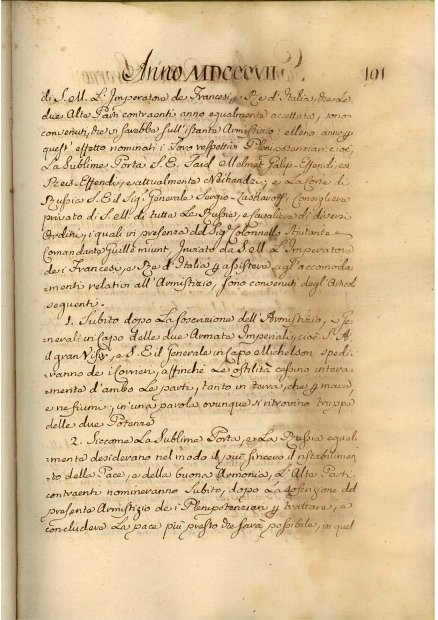 Anno MDCCCVII
101
di S. M. L'Imperatore de Francesi, e Re d'Italia, che Le
due Alte Parti contraenti anno equalmente accettata, sono
convenuti, che si farebbe sull'istante Armistizio: elleno anno p
quest'effetto nominati i Loro respettivi Plenipotenziari: cioè,
La Sublime Porta S. E. Said Mehmet Galip-Effendi, ex
Reis-Effendi, e attualmente; e La Corte di
Russia S. E. il Sig. Generale Sergio Consigliere
privato di S. M. di tutte Le Russie, e Cavaliere di diversi
Ordini, i quali in presenza del Sig. Colonnello Aiutante
Comandante Guilleminot, Inviato da S. M. L'Imperatore
de i Francesi, e Re d'Italia p assistere agl'accomoda-
menti relativi all'Armistizio, sono convenuti degl'Articoli
seguenti.
1. Subito dopo La soscrizione dell'Armistizio, i Ge-
nerali in Capo delle due Armate Imperiali, cioè S. A.
il gran Visir, e S. E. il Generale in Capo Michelson spedi-
ranno de i Corrieri, affinchè Le ostilità cessino intera-
mente d'ambo Le parti, tanto in terra, che p mare,
e ne fiumi, in una parola ovunque si ritrovino truppe
delle due Potenze
2. Siccome La Sublime Porta, e La Russia equal-
mente desiderano nel modo il più sincero il ristabilimen-
to della Pace, e della buona Armonia, L'Alte Parti
contraenti nomineranno Subito, dopo La soscrizione del
presente Armistizio de i Plenipotenziari p trattare, e
concludere La pace più presto che sarà possibile, in quel